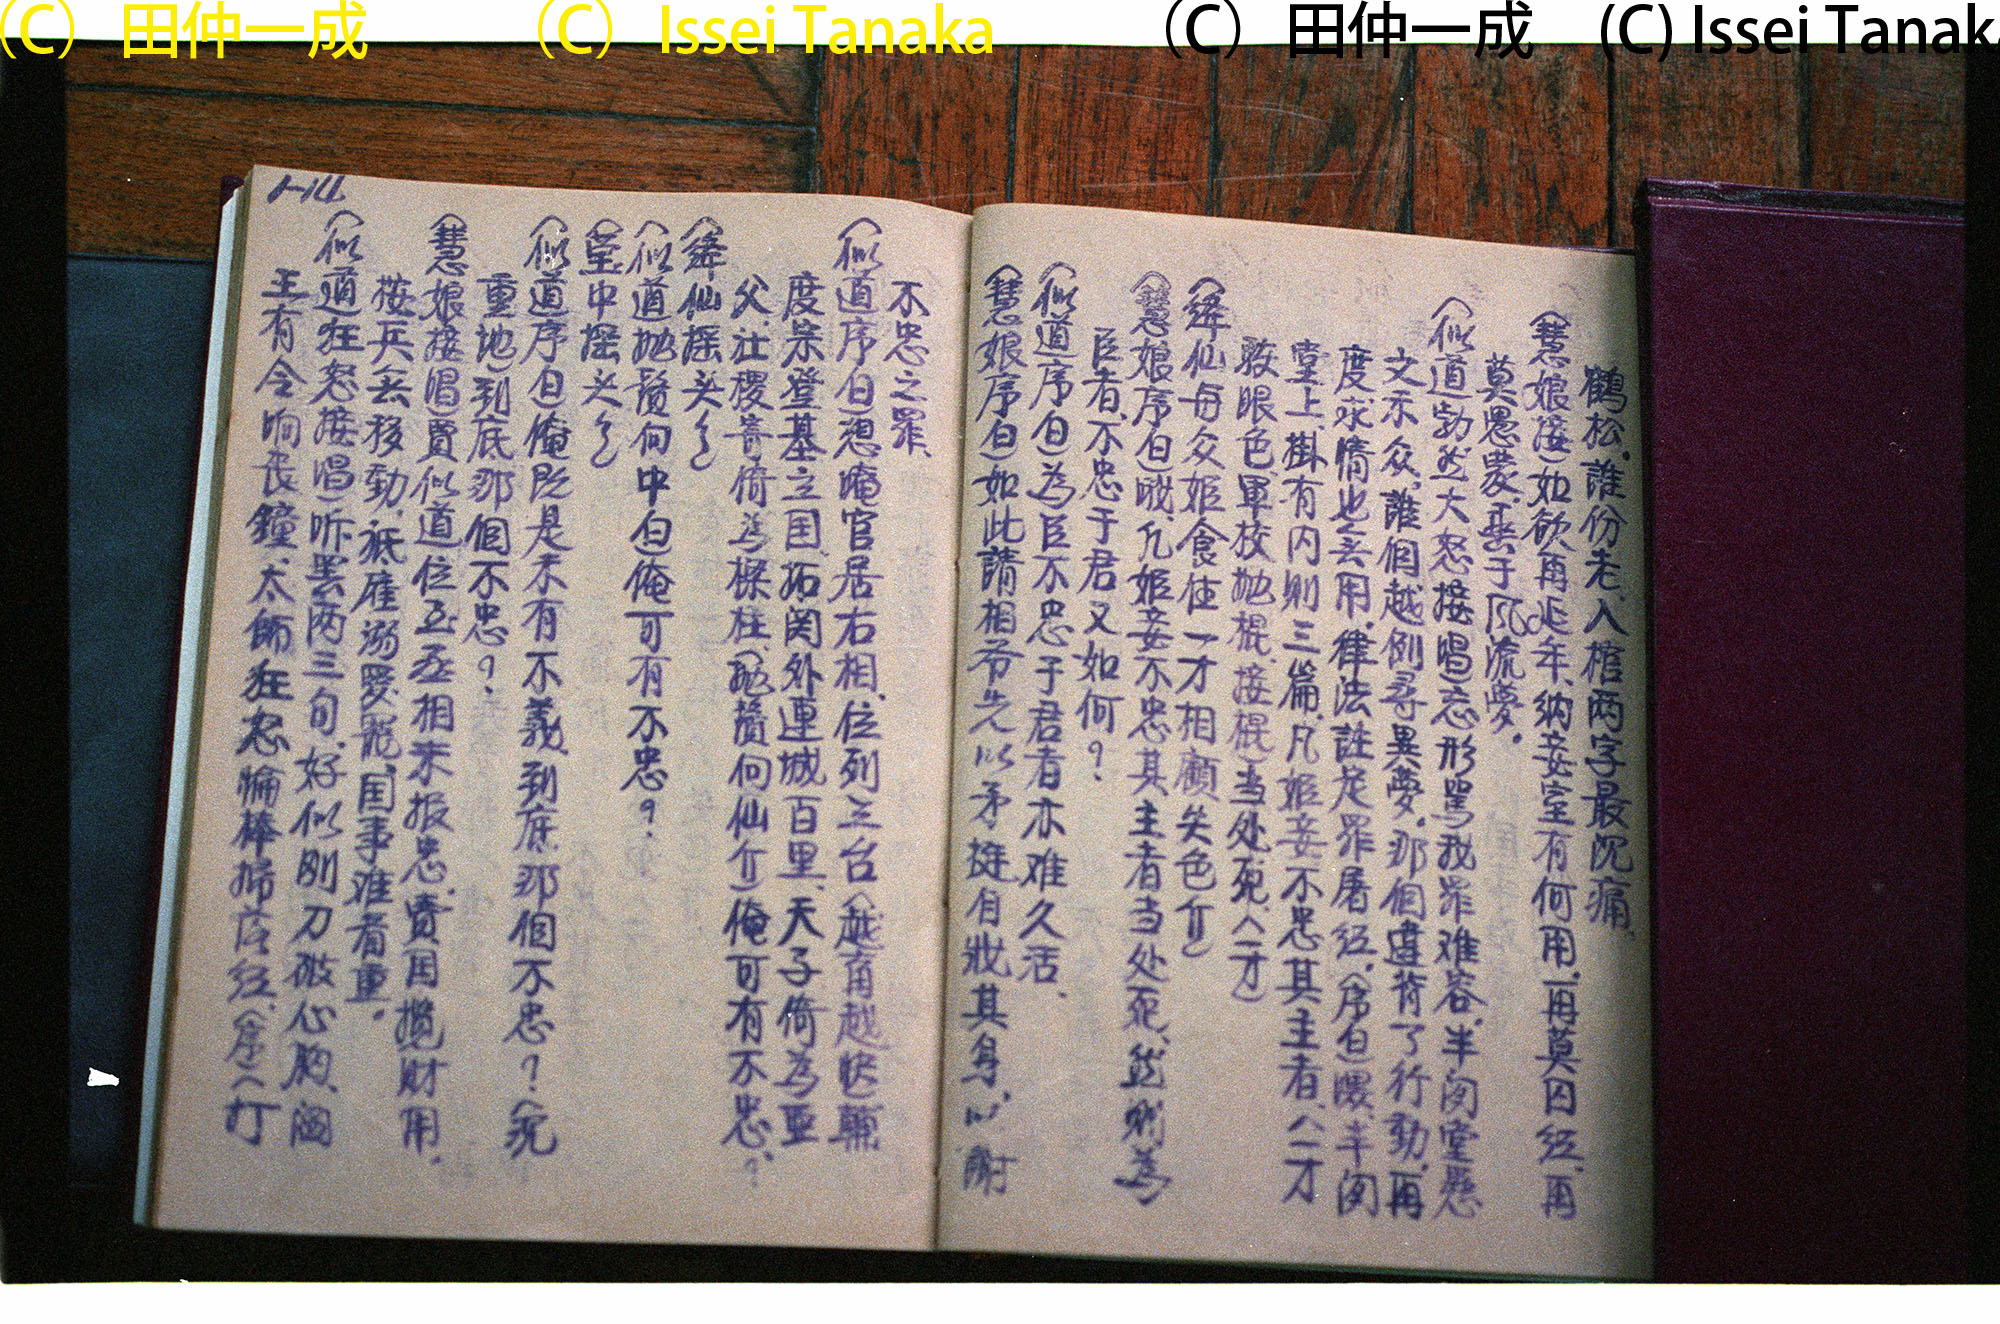 (C) 田仲一成 (C) Issei Tanaka (C) 田仲一成 (C) Issei Tanaka
鶴松，誰份老、入棺两字最沉痛，
(慧娘接如欲再延年、納妾室有何用，再莫因経，再
莫愚蒙，棄于风流夢。
(似道勃然大怒接唱)忘形罵我罪难容，半闲堂懸
文示众，誰個越例尋異夢，那個違背了行動，再
度求情也無用，律法註定罪屠経，(序白)喂，半闲
堂上，掛有内则三篇，凡姬妾不忠其主者，(一才
眼色軍校抛棍，接棍)当处死，(一才)
(絳仙每众姬食住一才相顧失色介)
(慧娘序白)哦，凡姬妾不忠其主者当处死，然则為
臣者，不忠于君又如何？
(似道序白)為臣不忠于君者亦难久活、
(慧娘序白)如此請相爷先以矛挺自戕其身，以謝
1-14
不忠之罪、
(似道序白)想俺官居右相，位列三台(越有越快)輔
度宗登基立国，拓関外連城百里，天子倚為亜
父，社稷寄倚為樑柱，(抛鬚向仙介)俺可有不忠？
(絳仙摇头)
(似道抛鬚向中白)俺可有不忠？
(堂中摇头)
(似道序白)俺既是未有不義，到底那個不忠？(沉
重地)到底那個不忠？
(慧娘接唱)賈似道位至丞相未报忠，賣国攬财用，
按兵無移動，祇雇溺愛寵，国事难着重。
(似道狂怒接唱)听罢两三句，好似刚刀破心胸，阎
王有令响丧鐘，太師狂怒掄棒掃 経，(序)(打